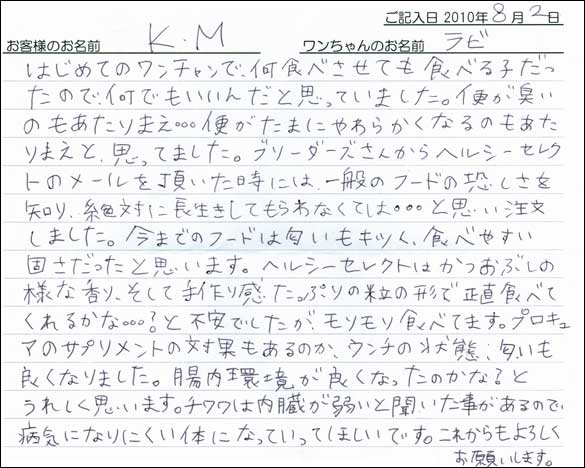 ご記入日 2010年 8月 2日
お客様のお名前 K.M ワンちゃんのお名前 ラビ
はじめてのワンチャンで、何食べさせても食べる子だっ
たので、何でもいいんだと思っていました。便が臭い
のもあたりまえ…便がたまにやわらかくなるのもあた
りまえと、思ってました。ブリーダーズさんからヘルシーセレク
トのメールを頂いた時には、一般のフードの恐しさを
知り、絶対に長生きしてもらわなくては…と思い注文
しました。今までのフードは匂いもキツく、食べやすい
固さだったと思います。ヘルシーセレクトはかつおぶしの
様な香り、そして手作り感たっぷりの粒の形で正直食べて
くれるかな…?と不安でしたが、モリモリ食べてます。プロキュ
アのサプリメントの効果もあるのか、ウンチの状態、匂いも
良くなりました。腸内環境が良くなったのかな?と
うれしく思います。チワワは内臓が弱いと聞いた事があるので
病気になりにくい体になっていってほしいです。これからもよろしく
お願いします。